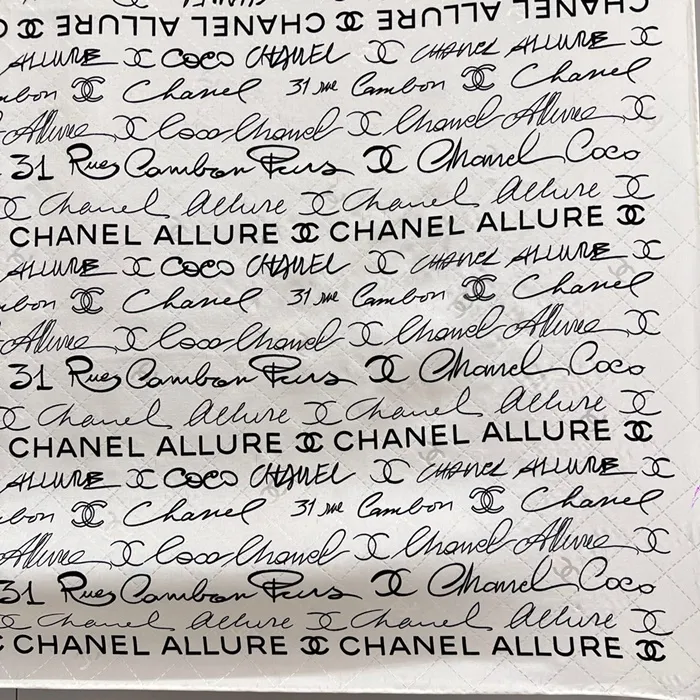 CHANEL ALLURE CHANEL ALLURE
ALLURE COCO CHANEL CHANEL ALLURE
mbon Chanel 31 rue Cambon Chanel
Allure Coco Chanel Chanel Allure
31 Rues Cambon Paris Chanel Coco
Chanel Allure Chanel Allure
CHANEL ALLURE CHANEL ALLURE
ALLURE COCO CHANEL CHANEL ALLURE
mbon Chanel 31 rue Cambon Chanel
Allure Coco Chanel Chanel Allure
31 Rues Cambon Paris Chanel Coco
Chanel Allure Chanel Allure
CHANEL ALLURE CHANEL ALLURE
ALLURE COCO CHANEL CHANEL ALLURE
bon Chanel 31 rue Cambon Chanel
Allure Coco Chanel Chanel Allure
31 Rues Cambon Paris Chanel Coco
Chanel Allure Chanel Allure
CHANEL ALLURE CHANEL ALLURE